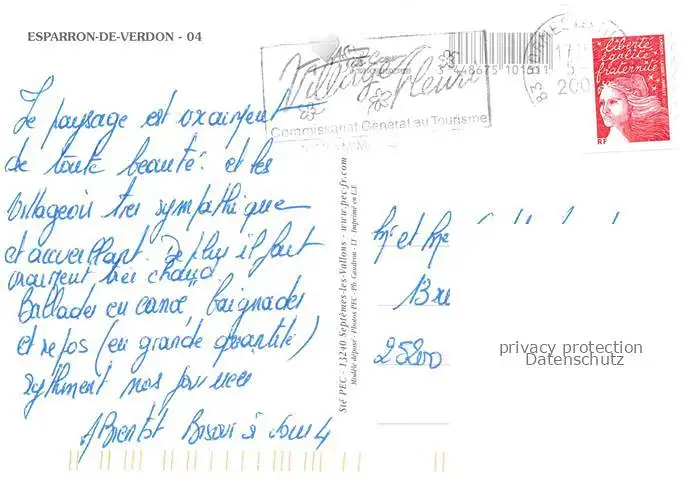 ESPARRON-DE-VERDON - 04
Village Fleuri
Commissariat Général au Tourisme
liberté
égalité
fraternité
RF
Le paysage est vraiment
de toute beauté. et les
villageois très sympathique
et accueillant. De plus il fait
vraiment très chaud
Ballades en canoë, baignades
et repos (en grande quantité)
rythment nos journées
A Bientôt Bisous à vous 4
Sté PEC - 13240 Septèmes-les-Vallons - www.pec-fr.com
Modèle déposé - Photos PEC - Ph. Caudron - LI - Imprimé en U.E.
Mr et Me
25200
privacy protection
Datenschutz